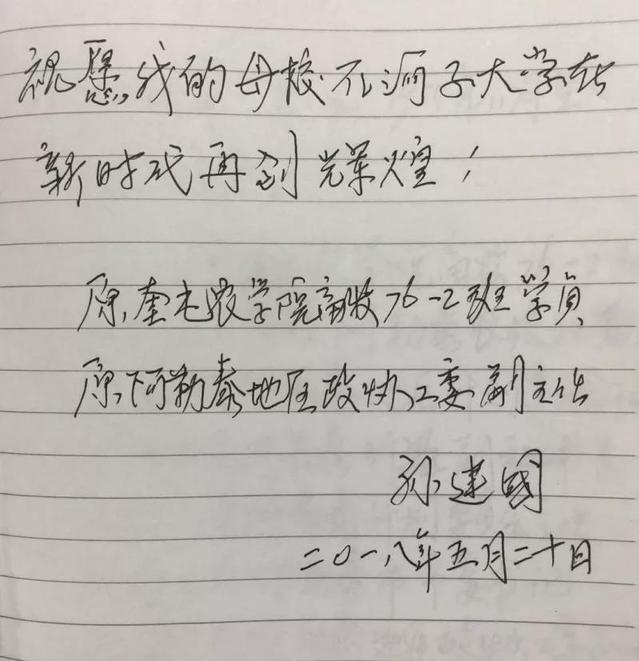 祝愿我的母校石河子大学在
新时代再创光荣辉煌！
原奎屯农学院畜牧76-2班学员
原阿勒泰地区政协工委副主任
孙建國
二〇一八年五月二十日